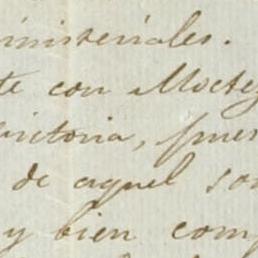 ministeriales.
te con Moctez
toria, pues
de aquel so
y bien comp